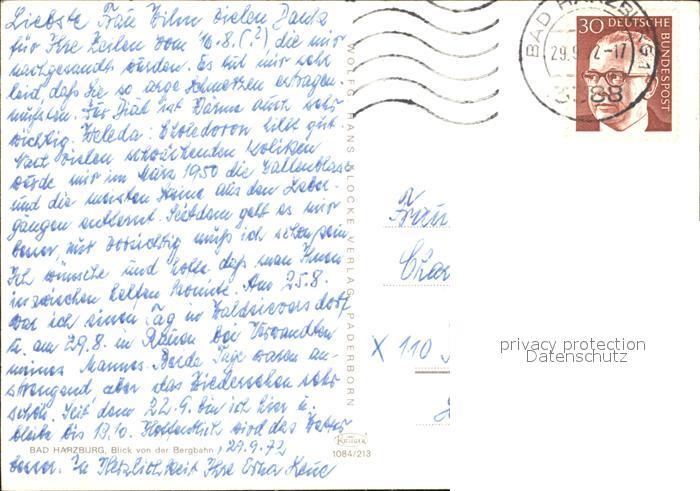 Liebste Frau Wilm vielen Dank
für Ihre Zeilen vom 16.8.(?) die mir
nachgesandt wurden. Es tut mir sehr
leid daß Sie so arge Schmerzen ertragen
mußten. Für Diät ist Wärme auch sehr
wichtig. Weleda: hilft gut.
Nach vielen schwächenden Koliken
wurde mir im März 1950 die Gallenblase
und die meisten Steine aus den Leber-
gängen entfernt. Seitdem geht es mir
besser, nur vorsichtig muß ich schon sein
Ich wünsche und hoffe daß man Ihnen
inzwischen helfen konnte. Am 25.8.
war ich einen Tag in Waldsieversdorf
u. am 29.8. in bei Verwandten
meines Mannes. Beide Tage waren an-
strengend aber das Wiedersehen sehr
schön. Seit dem 22.9. bin ich hier u.
bleibe bis 13.10. Hoffentlich wird das Wetter
BAD HARZBURG, Blick von der Bergbahn
29.9.72
besser. In Herzlichkeit Ihre Erna
WOLFGANG HANS KLOCKE VERLAG, PADERBORN
Krüger
1084/213
BAD HARZBURG 1
29.9.72-17
3388
30 DEUTSCHE BUNDESPOST
Frau
X 110
privacy protection
Datenschutz